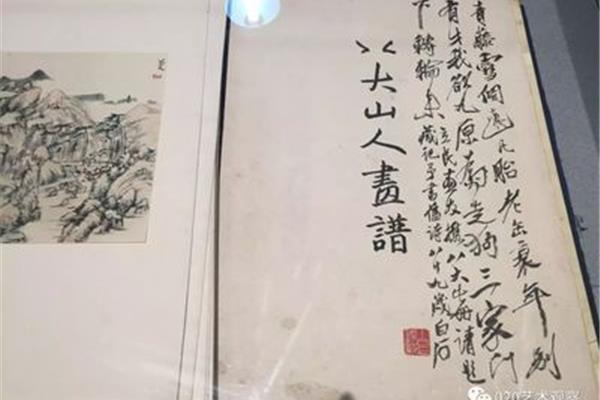 青藤雪個遠凡胎老缶衰年別
有才我欲九原爲走狗三家門
下轉輪來
立民畫友攜八大山册請題
藏記予書舊詩八十九歲白石
八大山人畫譜
020艺术观察